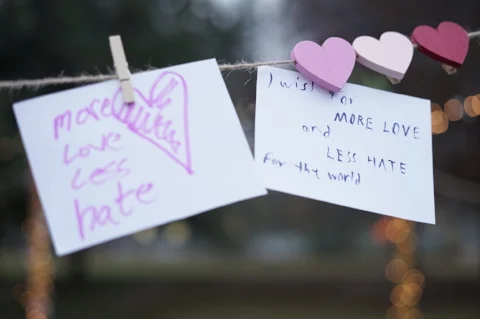 more
Love
Less
hate
I wish for
MORE LOVE
and
LESS HATE
For the world